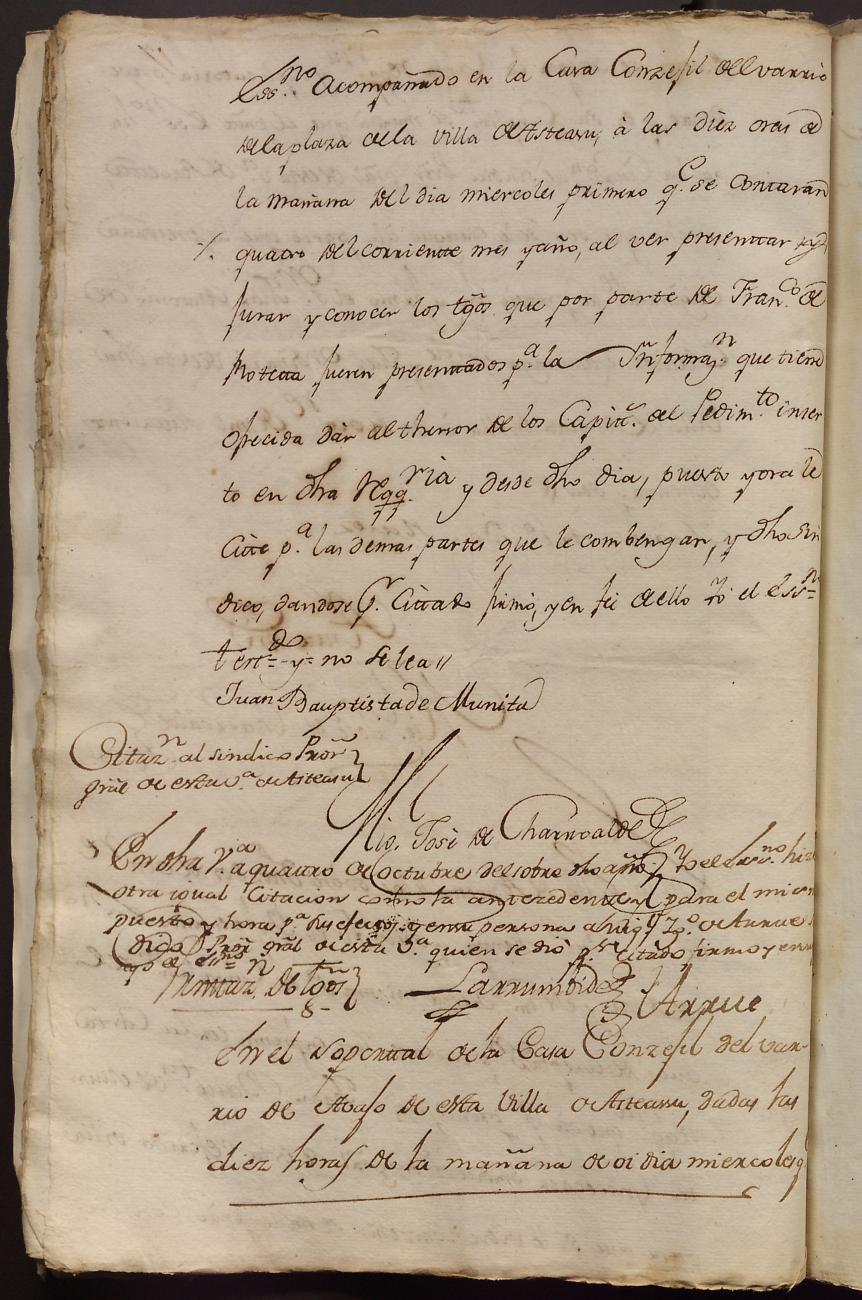 Ess.no Acompañado en la Cassa Conzejil del varrio
de la plaza de la villa de Asteasu, à las diez oras de
la mañana del dia miercoles primero q.e se contaran
/. quatro del corriente mes y año, al ver presenttar
jurar y conocer los tgos que por parte de Fran.co de
fueren presenttados p.a la Informaz.n que tiene
ofrecida dàr al thenor de los Capit.s del Pedim.to inser
to en dha Reqq.ria y desde dho dia, puesto y ora le
Citte p.a las demas partes que le combengan, y dho sin
dico, dandose p.r Cittado firmò, y en feè de ello Yò el Ess.no
t est.do = y = no se lea //
Juan Bauptista de Munita
Citaz.n al sindico Pror
gral de esta v.a de Asteasu
Mig. Josè de Charroalde
En dha V.a a quatro de octubre del sobre dho año Yo el Ess.no hize
otra igual Citacion como la antezedente para el mismo
puesto y hora p.a su efecto y en su persona a Mig.l Ig.o de Arrue
Pror gral de esta V.a quien se diò p.r citado firmo y en
yo el ess.no
Larrumbide Arrue
Juntaz.n de tgos
En el soportal de la Casa Conzejil del var-
rio de Abajo de esta Villa de Asteasu, dadas las
diez horas de la mañana de oi dia miercoles q